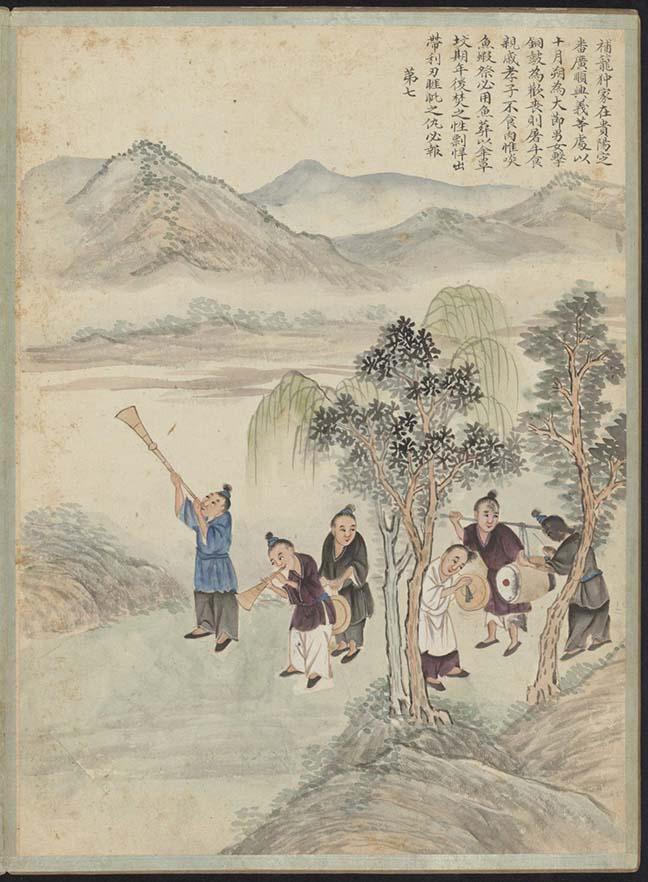 補籠狆家在貴陽定
番廣順興義等處以
十月朔為大節男女擊
銅鼓為歡喪則屠牛食
親戚孝子不食肉惟啖
魚蝦祭必用魚葬以傘罩
坟期年後焚之性剽悍出
帶利刃睚眦之仇必報
第七